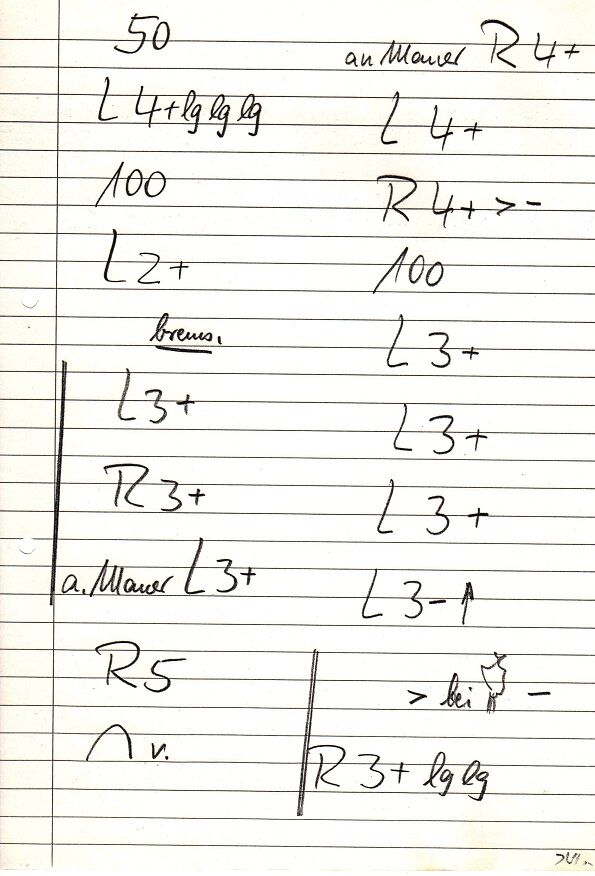 50
L 4+ lg lg lg
100
L 2+
brems.
L 3+
R 3+
a. Mauer L 3+
R 5
v.
an Mauer R 4+
L 4+
R 4+ > -
100
L 3+
L 3+
L 3+
L 3- ↑
> bei -
R 3+ lg lg